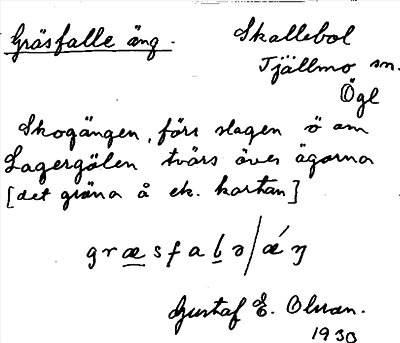 Gräsfalle äng.
Skallebol
Tjällmo sn.
Ögl
Skogängen, förr slagen ö om
Lagergölen tvärs över ägorna
[det gröna å ek. kartan]
græsfaḷə/ǽŋ
Gustaf E. Olsson.
1930